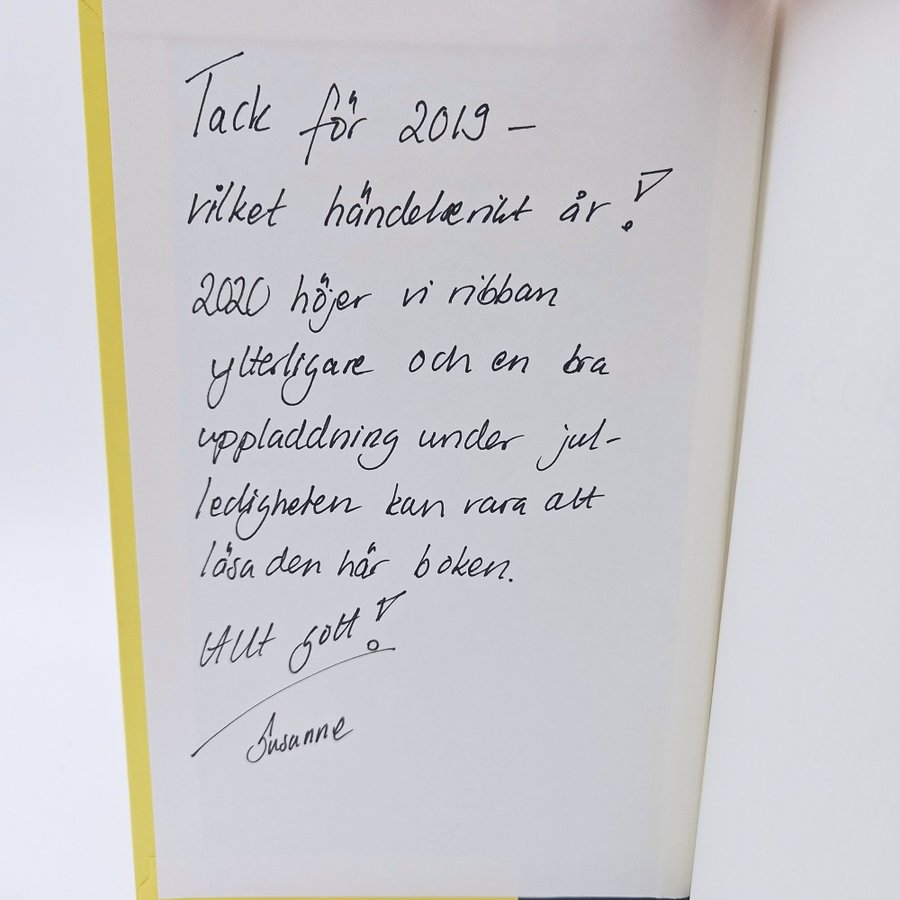 Tack för 2019 –
vilket händelserikt år!
2020 höjer vi ribban
ytterligare och en bra
uppladdning under jul-
ledigheten kan vara att
läsa den här boken.
Allt gott!
Susanne